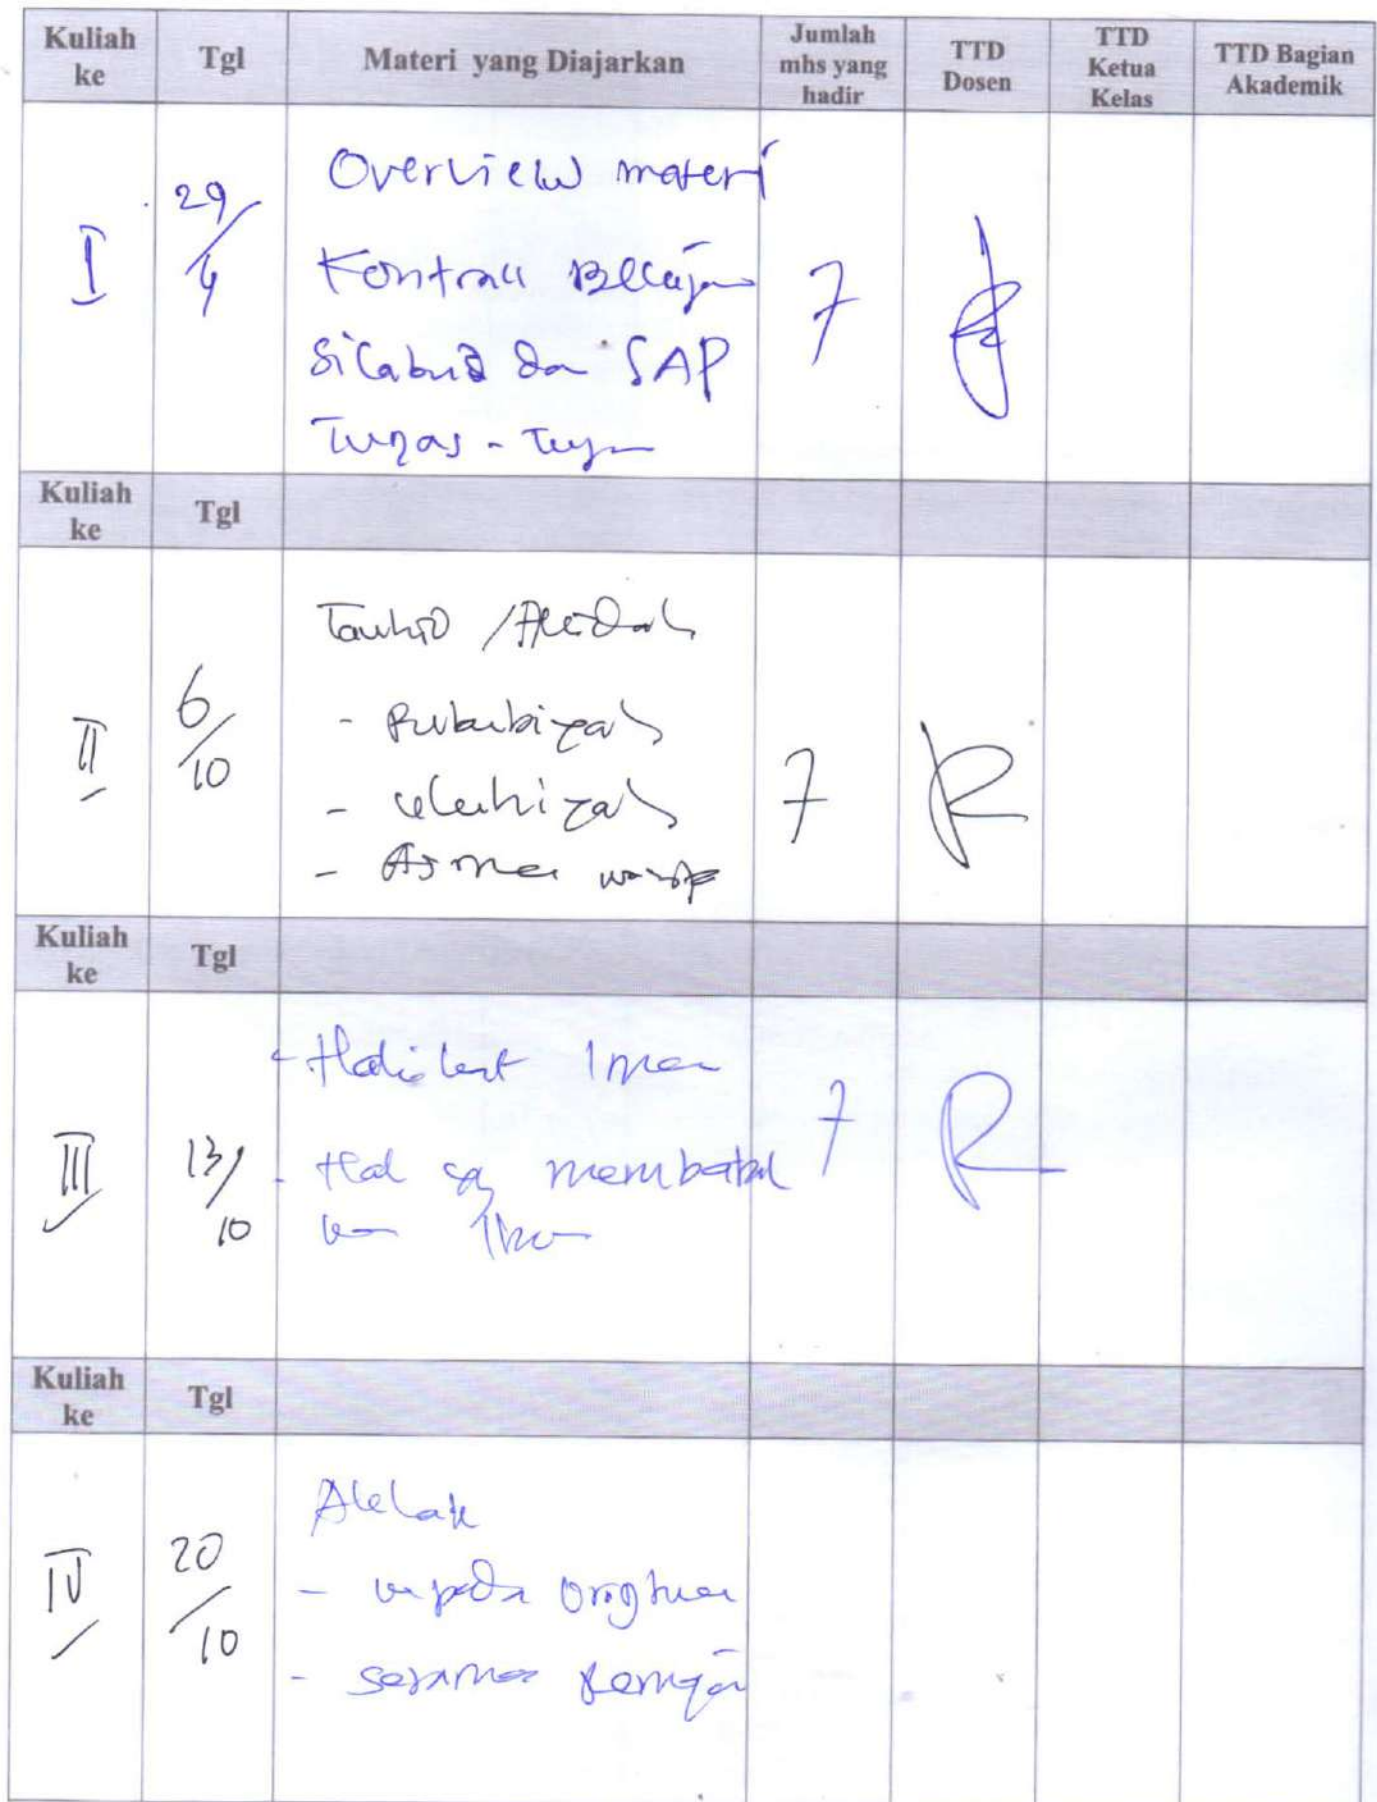 Kuliah ke
Tgl
Materi yang Diajarkan
Jumlah mhs yang hadir
TTD Dosen
TTD Ketua Kelas
TTD Bagian Akademik
I
29/4
Overview materi
Kontrak Belajar
Silabus dan SAP
Tugas - Tugas
7
Kuliah ke
Tgl
II
6/10
Tauhid / Akidah
- Rububiyah
- uluhiyah
- Asma
7
Kuliah ke
Tgl
III
13/10
- Hakikat Iman
- Hal yg membatal
kan Iman
7
Kuliah ke
Tgl
IV
20/10
Akhlak
- kepada orgtua
- sesama